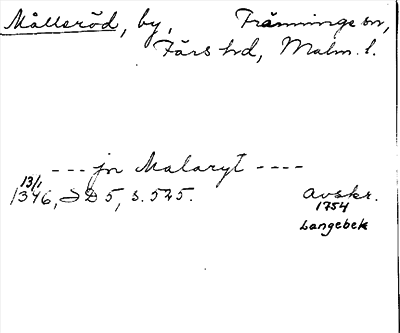 Mållsröd, by, Tränninge sn,
Färs hd, Malm. l.
--- jn Malaryt ----
13/1
1346, SD 5, s. 575. Avskr.
1754
Langebek